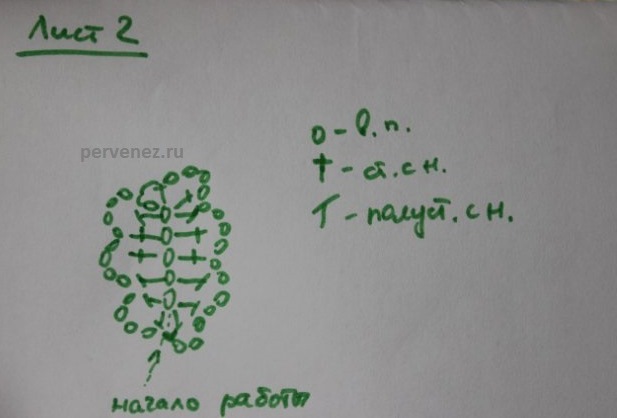 Лист 2
pervenez.ru
о - в.п.
† - ст.с н.
Т - полуст. с н.
начало работы